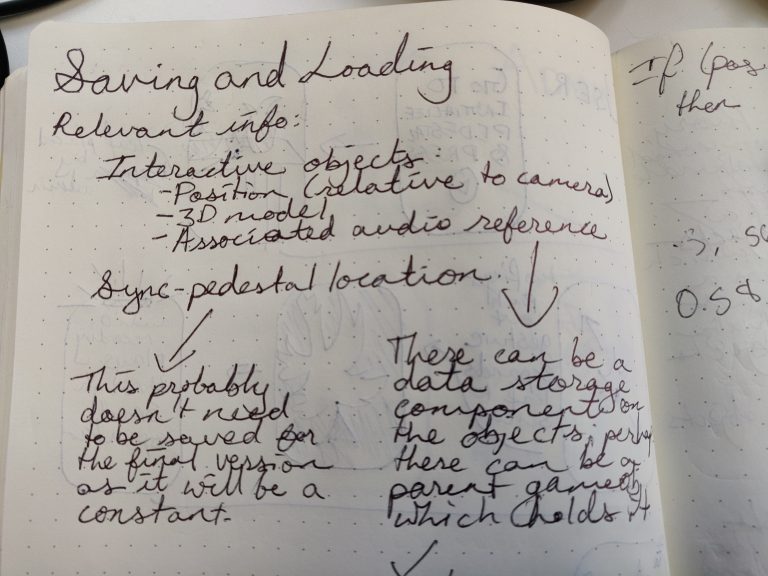 Saving and Loading
Relevant info:
Interactive objects:
- Position (relative to camera)
- 3D model
- Associated audio reference
Sync-pedestal location.
This probably
doesn't need
to be saved for
the final version
as it will be a
constant.
There can be a
data storage
component on
the objects,
there can be a
parent
which holds it
If (pos
then
0.58